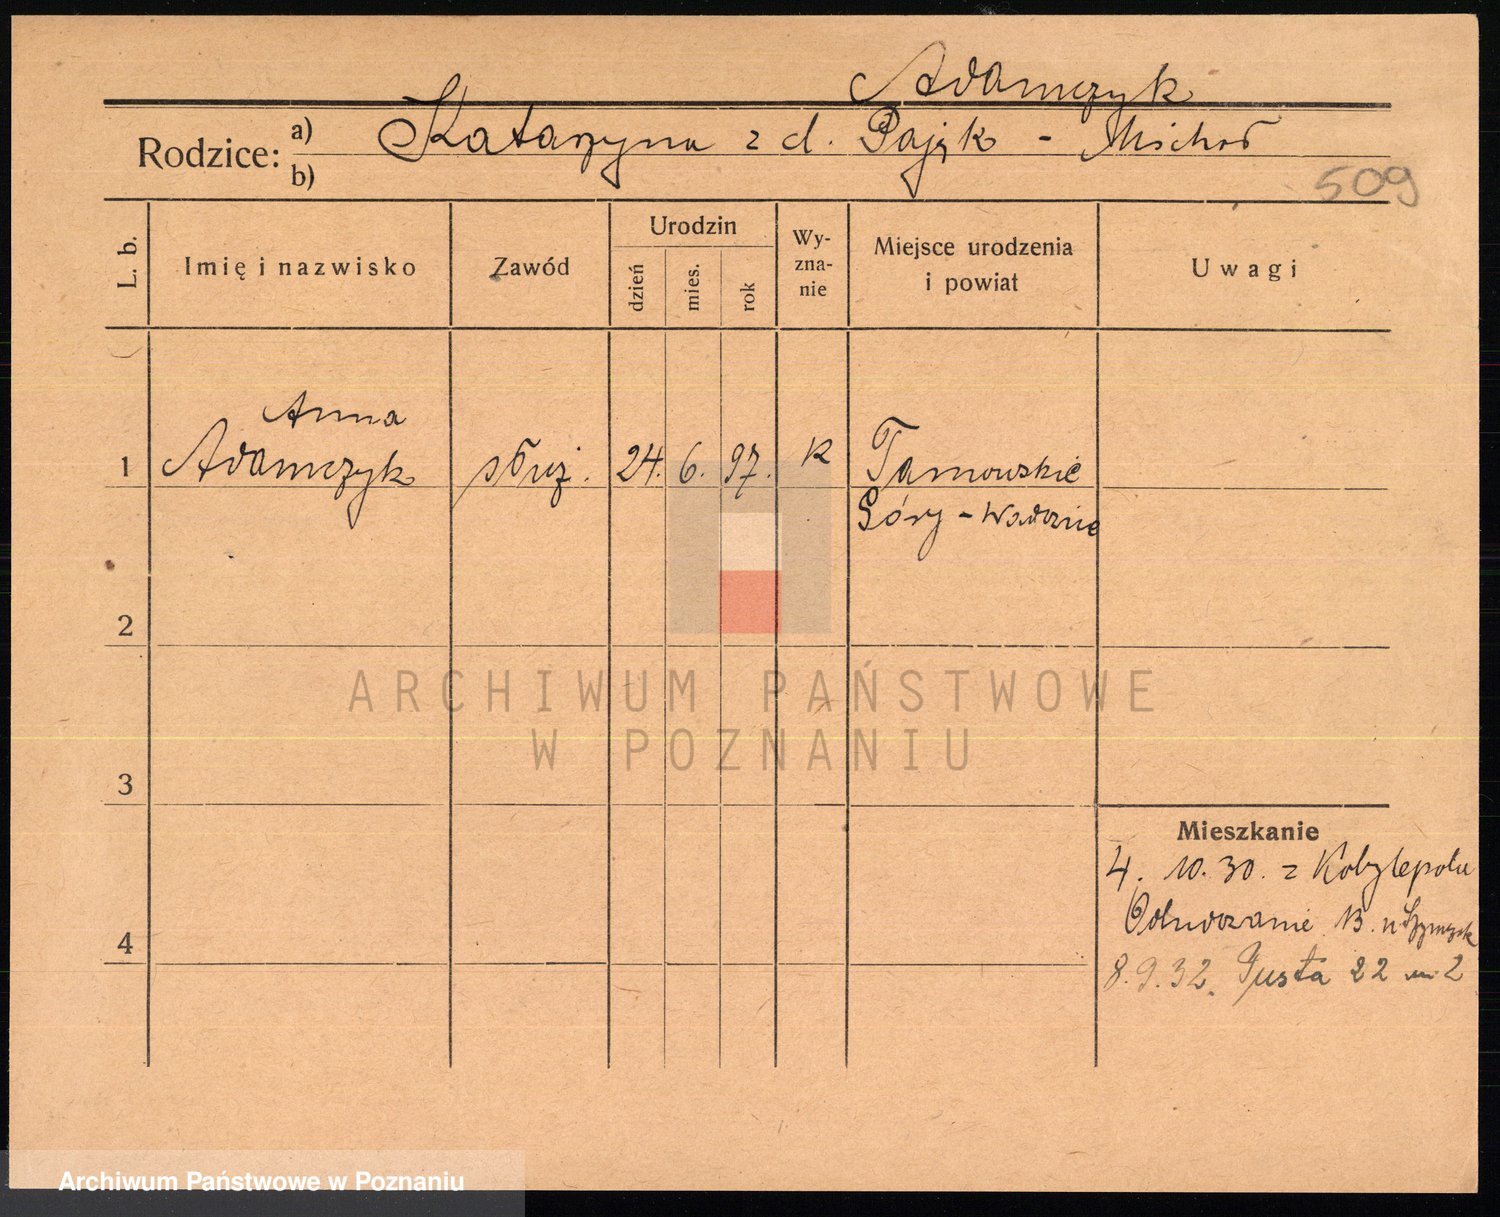 Adamczyk
Rodzice: a) Katarzyna z d. Pająk - Michał
b)
509
L. b.
Imię i nazwisko
Zawód
Urodzin
dzień
mies.
rok
Wy-
zna-
nie
Miejsce urodzenia
i powiat
Uwagi
Anna
1 Adamczyk służ. 24. 6. 97. K Tarnowskie
Góry -
2
ARCHIWUM PAŃSTWOWE
W POZNANIU
3
Mieszkanie
4. 10. 30. z Kobylepola
13. u
4
8.9.32. Pusta 22 m 2
Archiwum Państwowe w Poznaniu